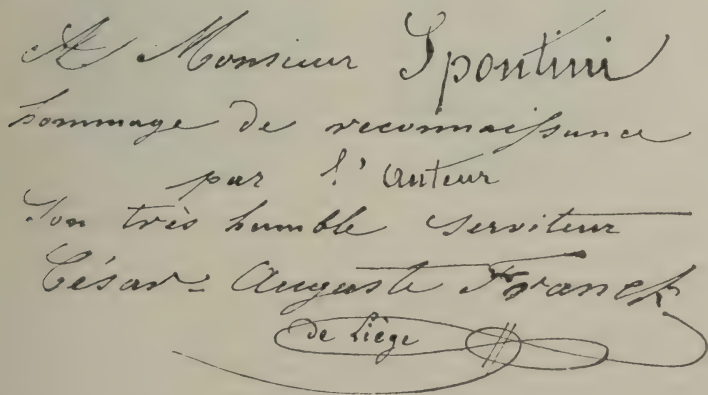 A Monsieur Spontini
hommage de reconnaissance
par l'auteur
Son très humble serviteur
César-Auguste Franck
de Liège